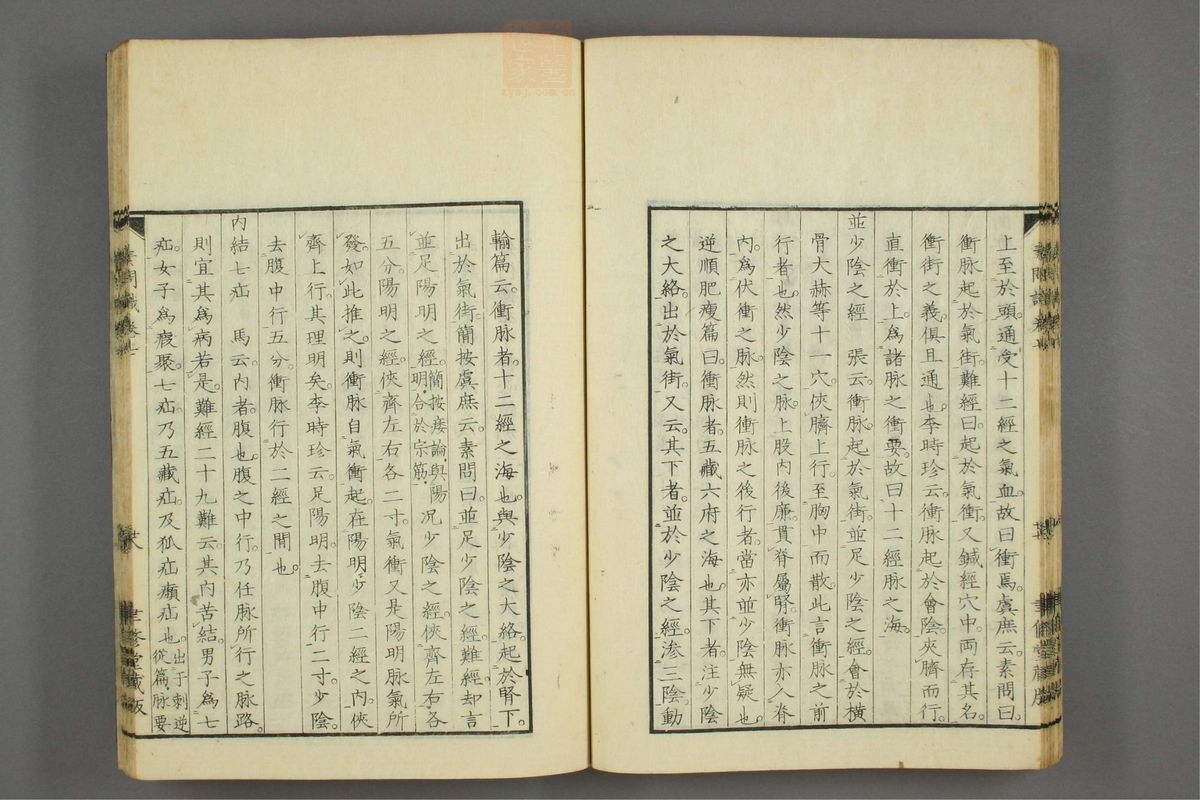 上至於頭。通受十二經之氣血。故曰衝焉。虞庶云。素問曰。
衝脉起於氣街。難經曰。起於氣衝。又鍼經穴中。兩存其名。
衝街之義。俱且通也。李時珍云。衝脉起於會陰。夾臍而行。
直衝於上。爲諸脉之衝要。故曰十二經脉之海。
並少陰之經 張云。衝脉起於氣街。並足少陰之經。會於橫
骨大赫等十一穴。俠臍上行。至胸中而散。此言衝脉之前
行者也。然少陰之脉。上股內後廉。貫脊屬腎。衝脉亦入脊
內。爲伏衝之脉。然則衝脉之後行者。當亦並少陰無疑也。
逆順肥瘦篇曰。衝脉者。五藏六府之海也。其下者。注少陰
之大絡。出於氣街。又云。其下者。並於少陰之經。滲三陰。動
輸篇云。衝脉者。十二經之海也。與少陰之大絡。起於腎下。
出於氣街。簡按虞庶云。素問曰。並足少陰之經。難經却言
並足陽明之經。簡按痿論。與陽明合於宗筋。況少陰之經。俠齊左右各
五分。陽明之經。俠齊左右各二寸。氣衝又是陽明脉氣所
發。如此推之。則衝脉自氣衝起。在陽明少陰二經之內。俠
齊上行。其理明矣。李時珍云。足陽明。去腹中行二寸。少陰。
去腹中行五分。衝脉行於二經之間也。
內結七疝 馬云。內者。腹也。腹之中行。乃任脉所行之脉路。
則宜其爲病若是。難經二十九難云。其內苦結。男子爲七
疝。女子爲瘕聚。七疝乃五藏疝。及狐疝㿗疝也。出于刺逆從篇脉要